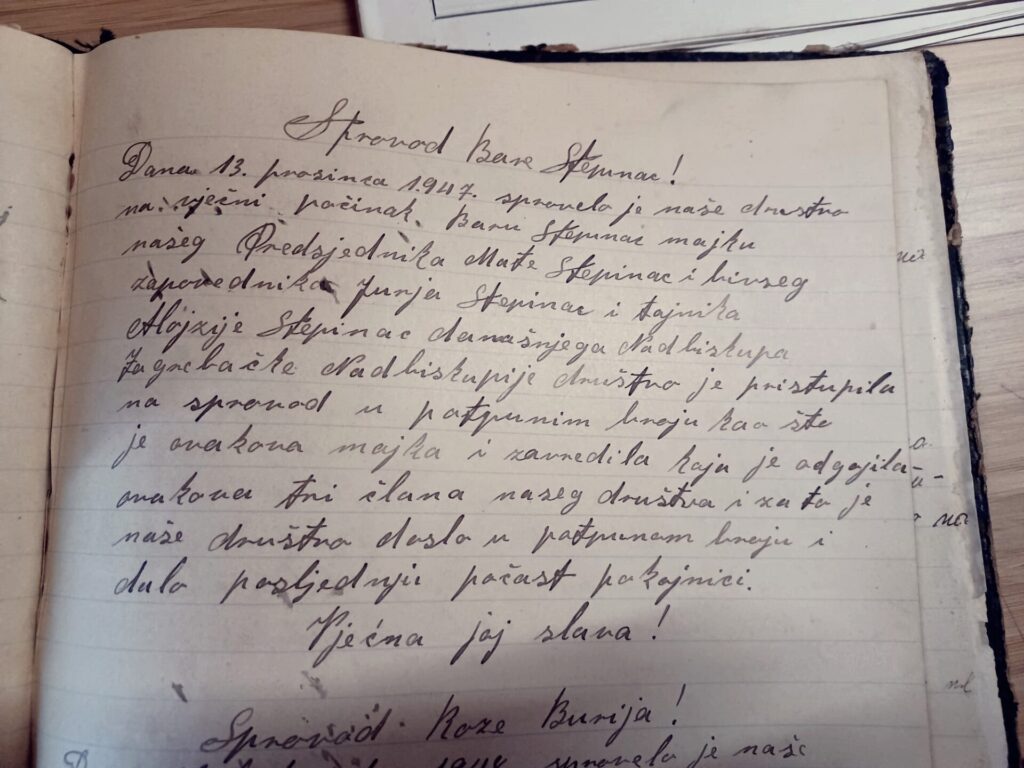 Sprovod Bare Stepinac!
Dana 13. prosinca 1947. sprovelo je naše drustvo
na vječni počinak Baru Stepinac majku
našeg Predsjednika Mate Stepinac i bivseg
zapovednika Jurja Stepinac i tajnika
Alojzije Stepinac današnjega Nadbiskupa
Zagrebačke Nadbiskupije društvo je pristupila
na sprovod u potpunim broju kao što
je ovakova majka i zavredila koja je odgojila
ovakova tri člana naseg društva i za to je
naše društvo doslo u potpunom broju i
dalo posljednju počast pokojnici.
Vječna joj slava!
Sprovod Roze Burija!
sprovelo je naše